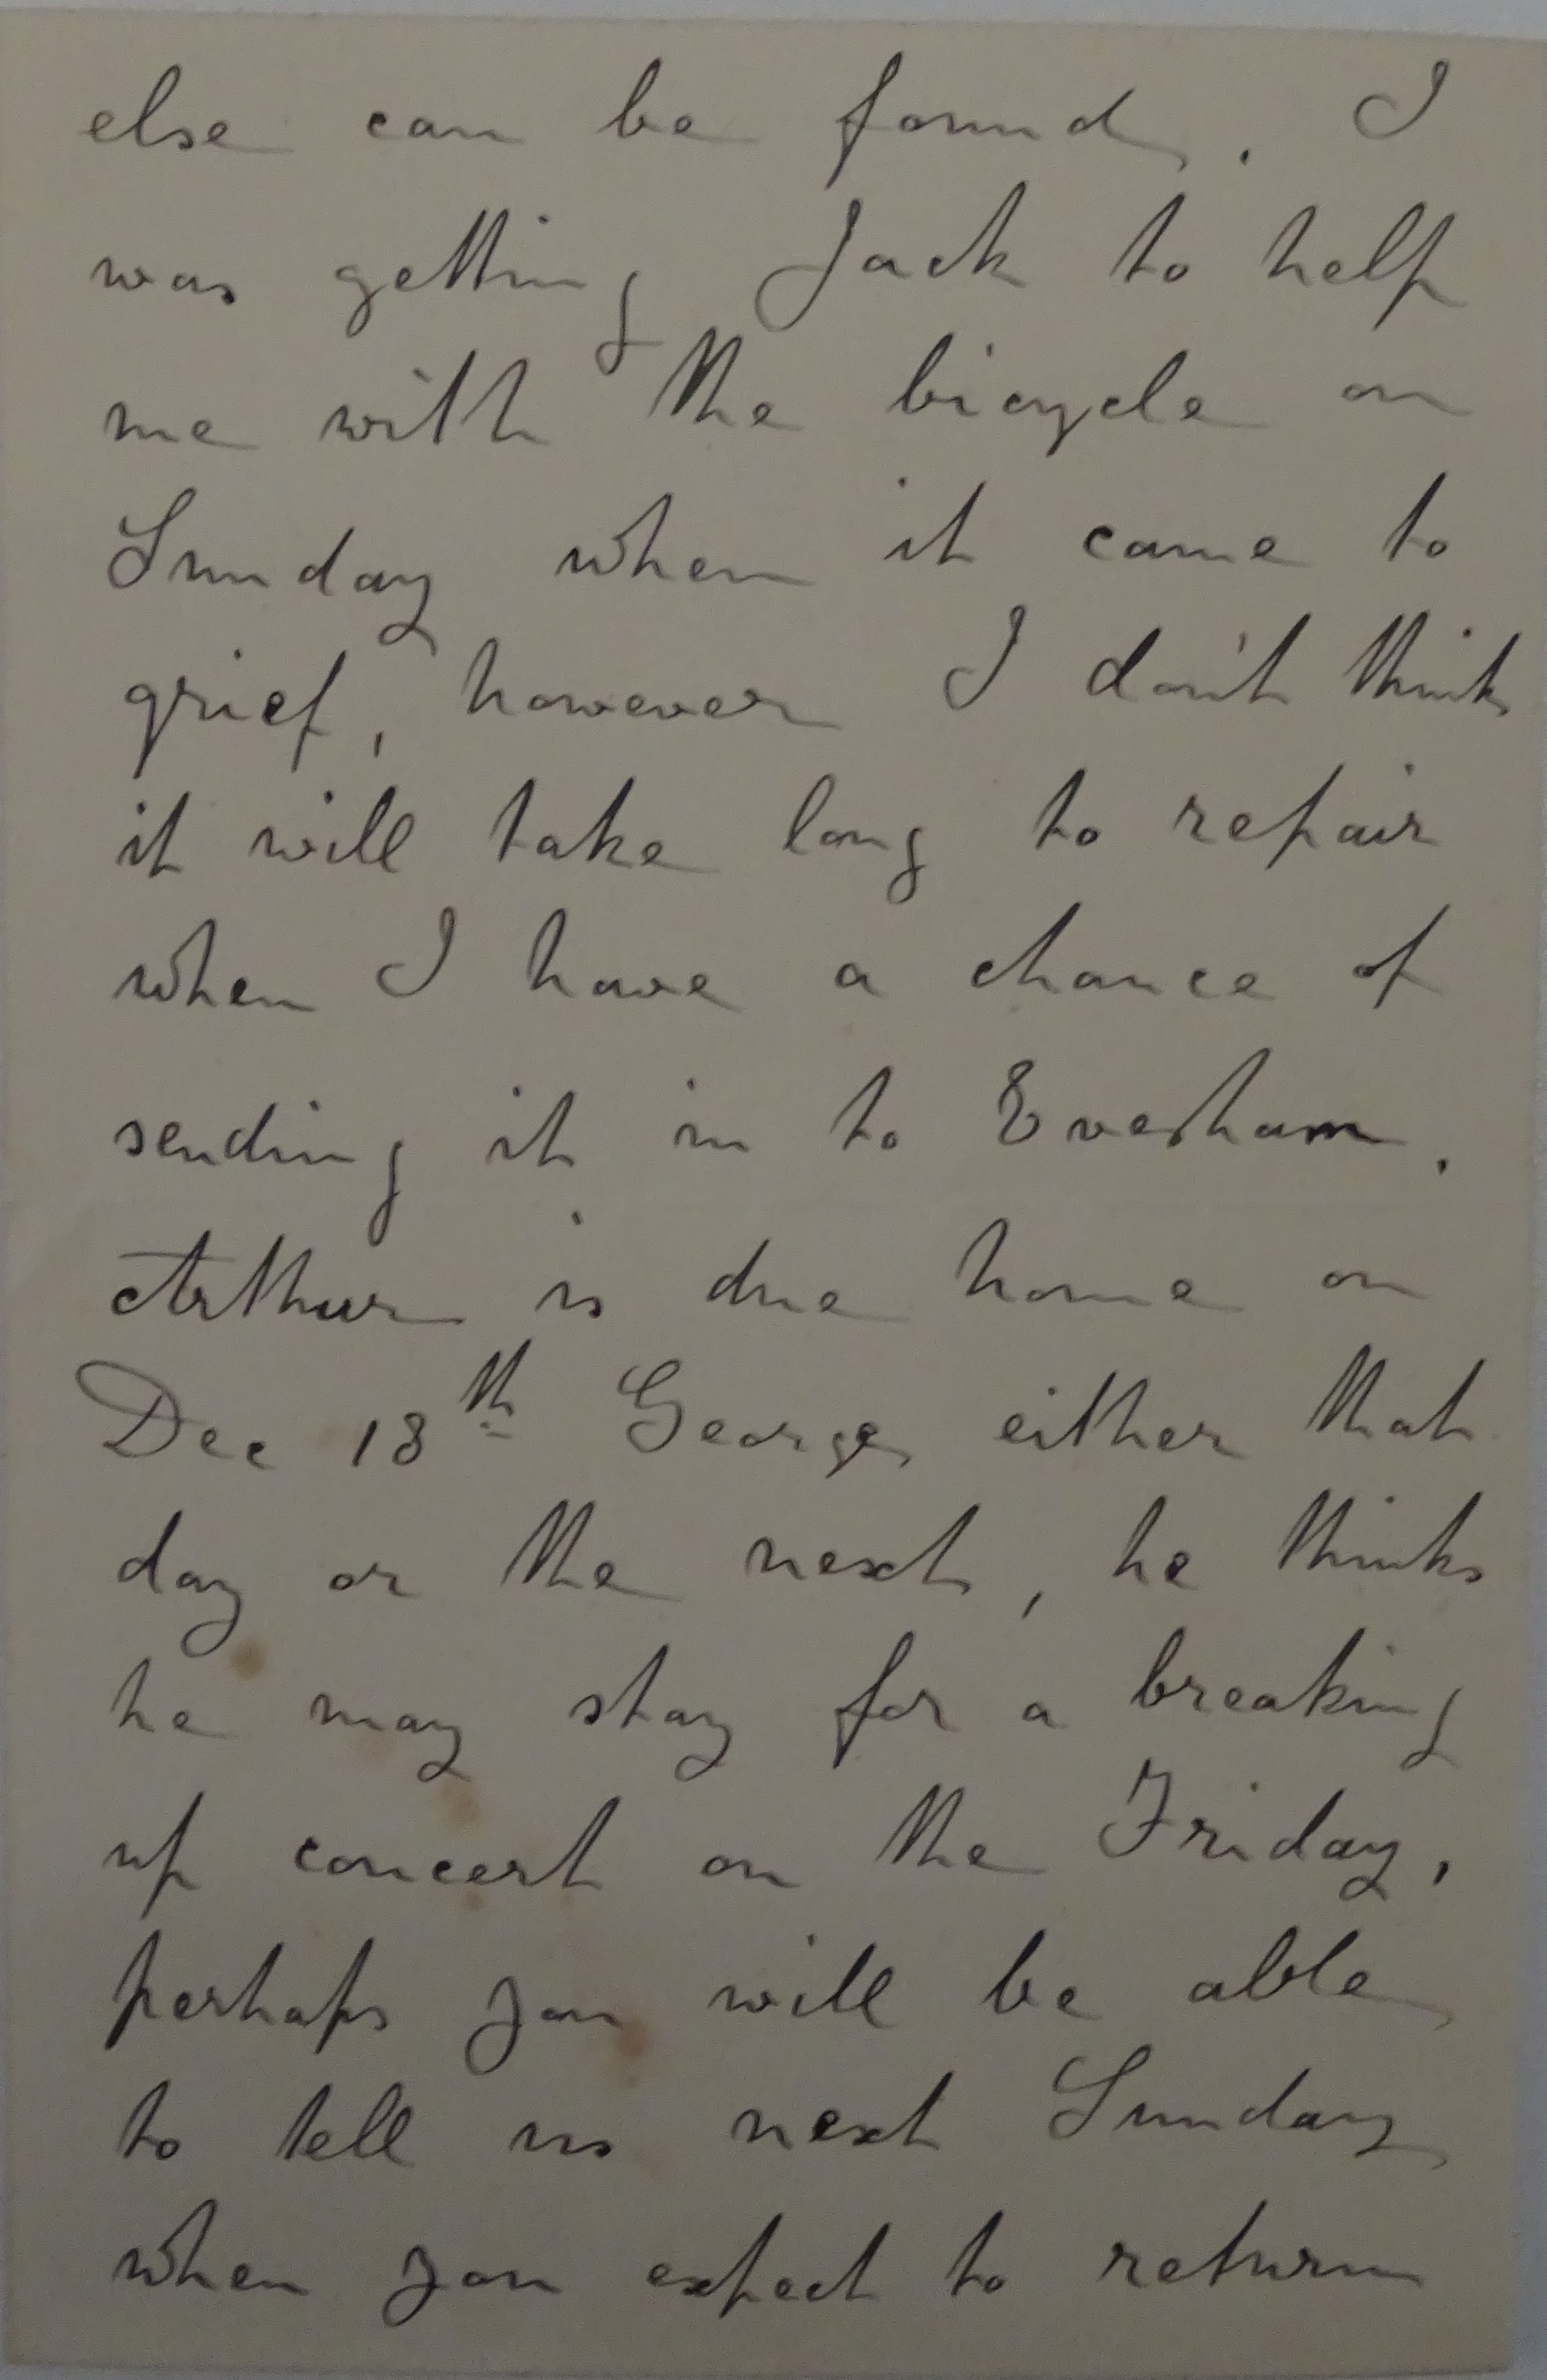 else can be found. I
was getting Jack to help
me with the bicycle on
Sunday when it came to
grief, however I don't think
it will take long to repair
when I have a chance of
sending it in to Evesham.
Arthur is due home on
Dec 18th George either that
day or the next, he thinks
he may stay for a breaking
up concert on the Friday,
perhaps you will be able
to tell us next Sunday
when you expect to return